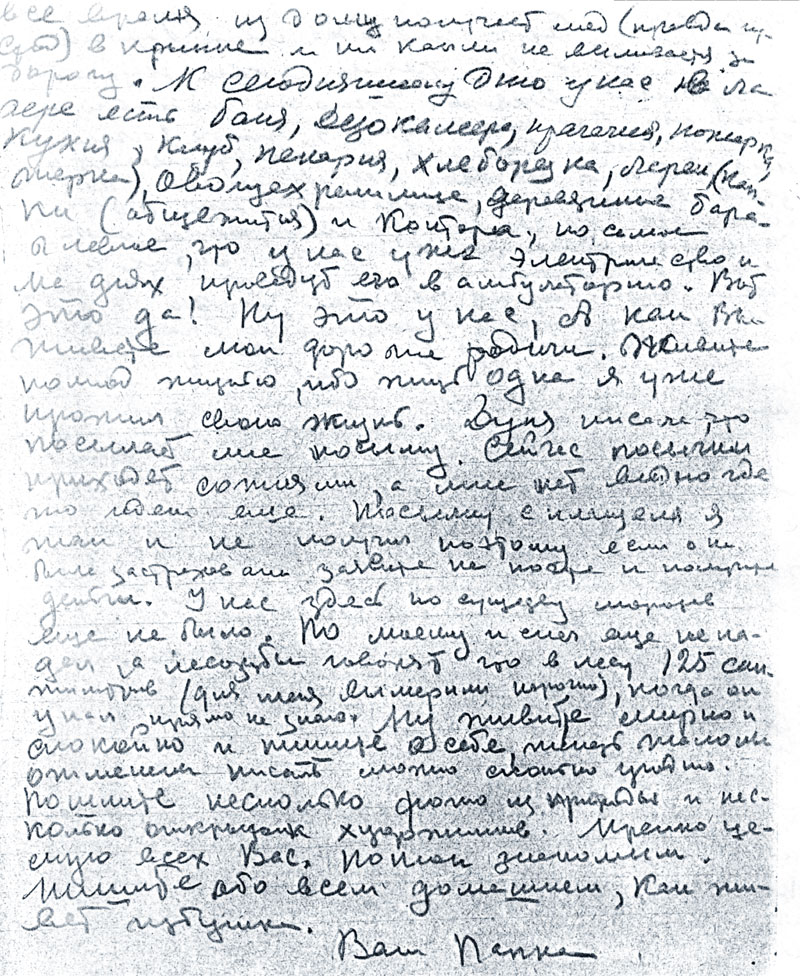 все время из дому получает мед (правда
) в крынке и ни капли не выливается за
дорогу. К сегодняшнему дню у нас в ла
гере есть баня, дезокамера, прачечная, пожарка,
кухня, клуб, пекарня, хлеборезка, ларек (кап-
терка), овощехранилище, деревянные бара-
ки (общежития) и контора, но самое
главное, что у нас уже электричество и
на днях проведут его в амбулаторию. Вот
это да! Ну это у нас, а как вы
живете мои дорогие родичи. Живите
полной жизнью, ибо жизнь одна я уже
прожил свою жизнь. писала что
посылает мне посылку. Сейчас посылки
приходят сотнями, а мне нет видно где
то едет еще. Посылку с я
так и не получил поэтому если она
была застрахована заявите на почте и получите
деньги. У нас здесь по существу морозов
еще не было. По моему и снег еще не па-
дал, а лесорубы говорят что в лесу 125 сан-
тиметров (для меня вымерили нарочно), когда он
упал, прямо не знаю. Ну живите смирно и
спокойно и пишите о себе, теперь
отменены писать можно сколько угодно.
Пошлите несколько фото из природы и нес-
колько открыток художников. Крепко це-
лую всех Вас. Поклон знакомым.
Пишите обо всем домашнем, как жи-
вет избушка.
Ваш Папка